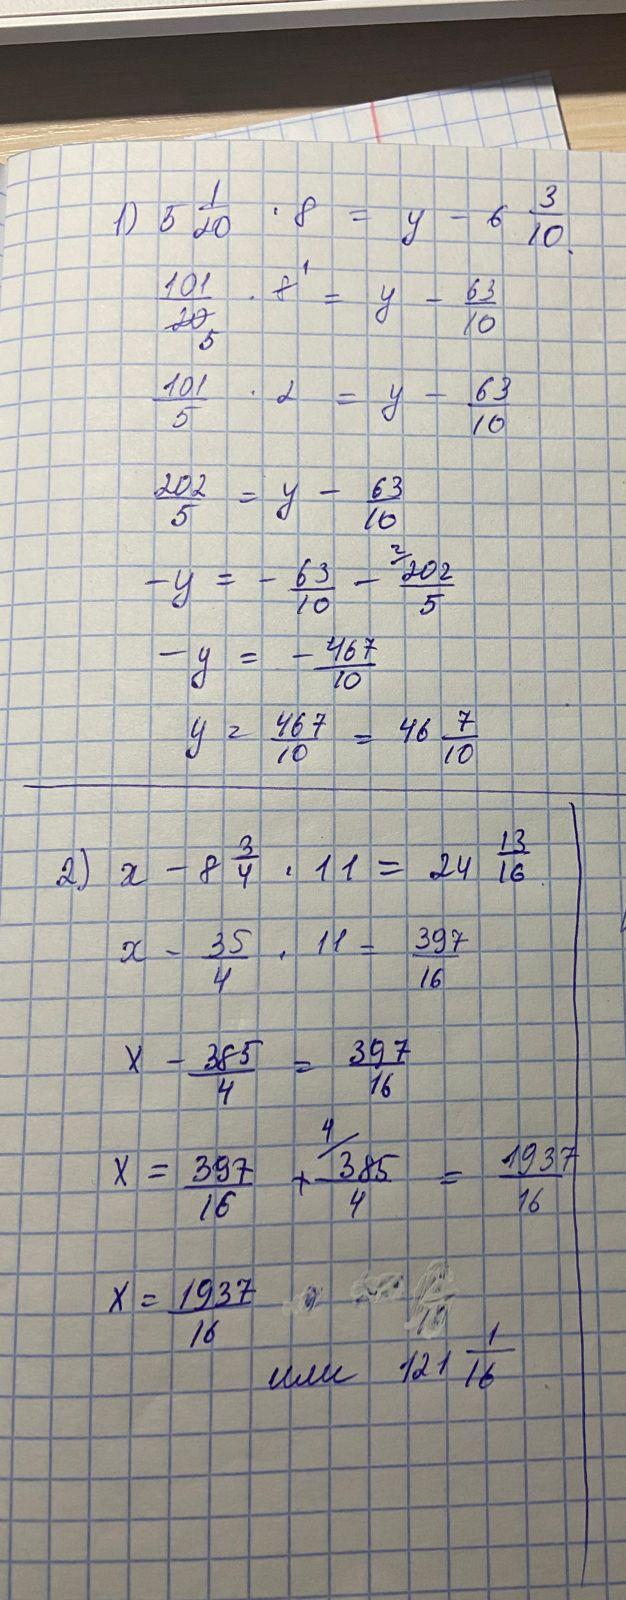 1) 5 1/20 · 8 = y - 6 3/10.
101/20 5 · 8 1 = y - 63/10
101/5 · 2 = y - 63/10
202/5 = y - 63/10
-y = - 63/10 - 2/ 202/5
-y = - 467/10
y = 467/10 = 46 7/10
2) x - 8 3/4 · 11 = 24 13/16
x - 35/4 · 11 = 397/16
x - 385/4 = 397/16
x = 397/16 + 4/ 385/4 = 1937/16
x = 1937/16
или 121 1/16